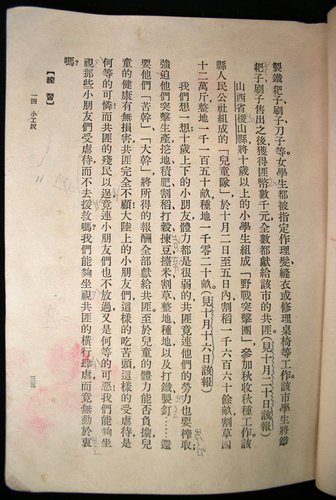 製鐵耙子、刷子、刀子等;女學生都被指定作理髮縫衣或修理桌椅等工作。該市學生將鐵
耙子、刷子售出之後,獲得匪幣數千元,全數都獻給該市的共匪。(見十月二十日該報)
山西省稷山縣將十歲以上的小學生組成「野戰突擊團」,參加秋收秋種工作;該
縣人民公社組成的「兒童隊」,於十月二日至五日內,割稻一千六百六十餘畝,割草四
十二萬斤,整地一千一百五十畝,種地一千零二十畝。(見十月十六日該報)
我們想一想:十歲上下的小朋友,體力都是很弱的,共匪竟連他們的勞力也要榨取,
強迫他們突擊生產,挖地積肥,割稻打穀,揀棗擦米,割草、整地、種地,以及打鐵製釘……還
要他們「苦幹」,「大幹」,將所得的報酬全部獻給共匪;至於兒童的體力能否負擔,兒
童的健康有無損害,共匪完全不顧。大陸上的小朋友們,這樣的吃苦頭,這樣的受虐待,是
何等的可憐;而共匪的殘民以逞,竟連小朋友們也不放過,又是何等的可惡!我們能夠坐
視那些小朋友們受虐待而不去援救嗎?我們能夠坐視共匪的橫行肆虐而竟無動於衷
嗎?
【練習】
一四 小工奴
三五